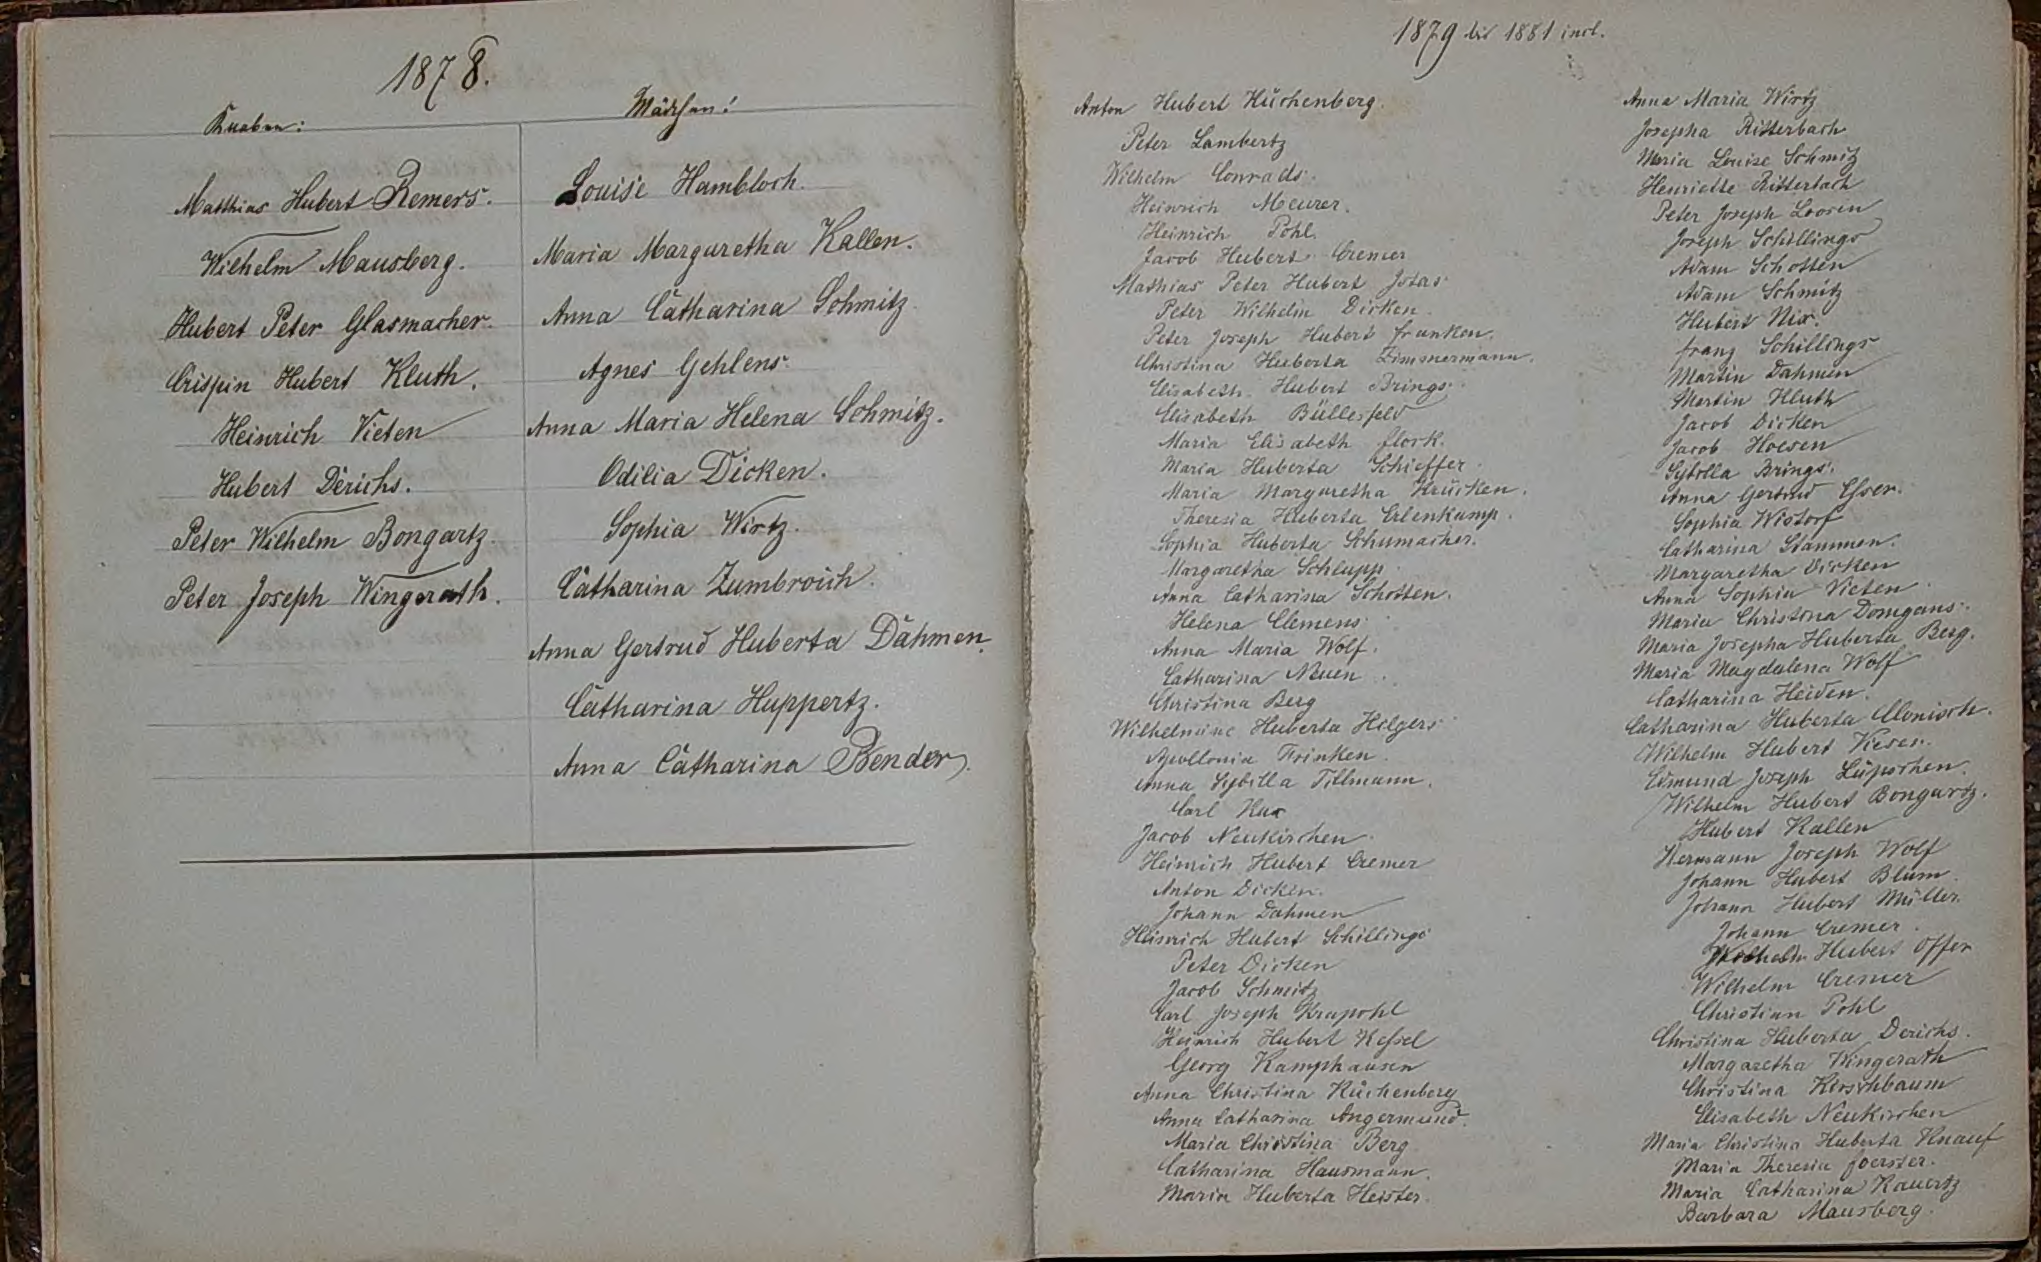 1878.
Knaben:
Matthias Hubert Remers.
Wilhelm Mausberg.
Hubert Peter Glasmacher.
Crispin Hubert Kluth.
Heinrich Vieten
Hubert Derichs.
Peter Wilhelm Bongartz.
Peter Joseph Wingerath.
Mädchen:
Louise Hambloch.
Maria Margaretha Kallen.
Anna Catharina Schmitz.
Agnes Gehlens.
Anna Maria Helena Schmitz.
Odilia Dicken.
Sophia Wirtz.
Catharina Zumbroich.
Anna Gertrud Huberta Dahmen.
Catharina Huppertz.
Anna Catharina Bender.
1879 bis 1881 incl.
Anton Hubert Küchenberg.
Peter Lambertz
Wilhelm Conrads.
Heinrich Meurer.
Heinrich Pohl.
Jacob Hubert Cremer
Mathias Peter Hubert Jotas
Peter Wilhelm Dicken.
Peter Joseph Hubert Franken.
Christina Huberta Zimmermann.
Elisabeth Hubert Brings.
Elisabeth Büllesfeld
Maria Elisabeth Flock.
Maria Huberta Schieffer.
Maria Margaretha Krücken.
Theresia Huberta Erlenkamp.
Sophia Huberta Schumacher.
Margaretha Schlupp.
Anna Catharina Schotten.
Helena Clemens
Anna Maria Wolf.
Catharina Neuen.
Christina Berg
Wilhelmine Huberta Hilgers
Apollonia Frinken.
Anna Sybilla Tillmann.
Carl Kux
Jacob Neukirchen.
Heinrich Hubert Cremer
Anton Dicken.
Johann Dahmen
Heinrich Hubert Schillings
Peter Dicken
Jacob Schmitz
Carl Joseph Krapohl
Heinrich Hubert Kessel
Georg Kamphausen
Anna Christina Küchenberg
Anna Catharina Angermund.
Maria Christina Berg
Catharina Hausmann.
Maria Huberta Heister.
Anna Maria Wirtz
Josepha Ritterbach
Maria Louise Schmitz
Henriette Ritterbach
Peter Joseph Loosen
Joseph Schillings
Adam Schotten
Adam Schmitz
Hubert Nix.
Franz Schillings
Martin Dahmen
Martin Kluth
Jacob Dicken
Jacob Hoesen
Sybilla Brings.
Anna Gertrud Esser.
Sophia Wistorf
Catharina Stammen.
Margaretha Dicken
Anna Sophia Vieten
Maria Christina Domgans.
Maria Josepha Huberta Berg.
Maria Magdalena Wolf
Catharina Heiden.
Catharina Huberta Monisch.
Wilhelm Hubert Viesen.
Edmund Joseph Lüpschen.
Wilhelm Hubert Bongartz.
Hubert Kallen
Hermann Joseph Wolf
Johann Hubert Blum.
Johann Hubert Müller.
Johann Cremer.
Wilhelm Hubert Offer
Wilhelm Cremer
Christian Pohl
Christina Huberta Derichs.
Margaretha Wingerath
Christina Kirschbaum
Elisabeth Neukirchen
Maria Christina Huberta Knauf
Maria Theresia Foerster.
Maria Catharina Kauertz
Barbara Mausberg.